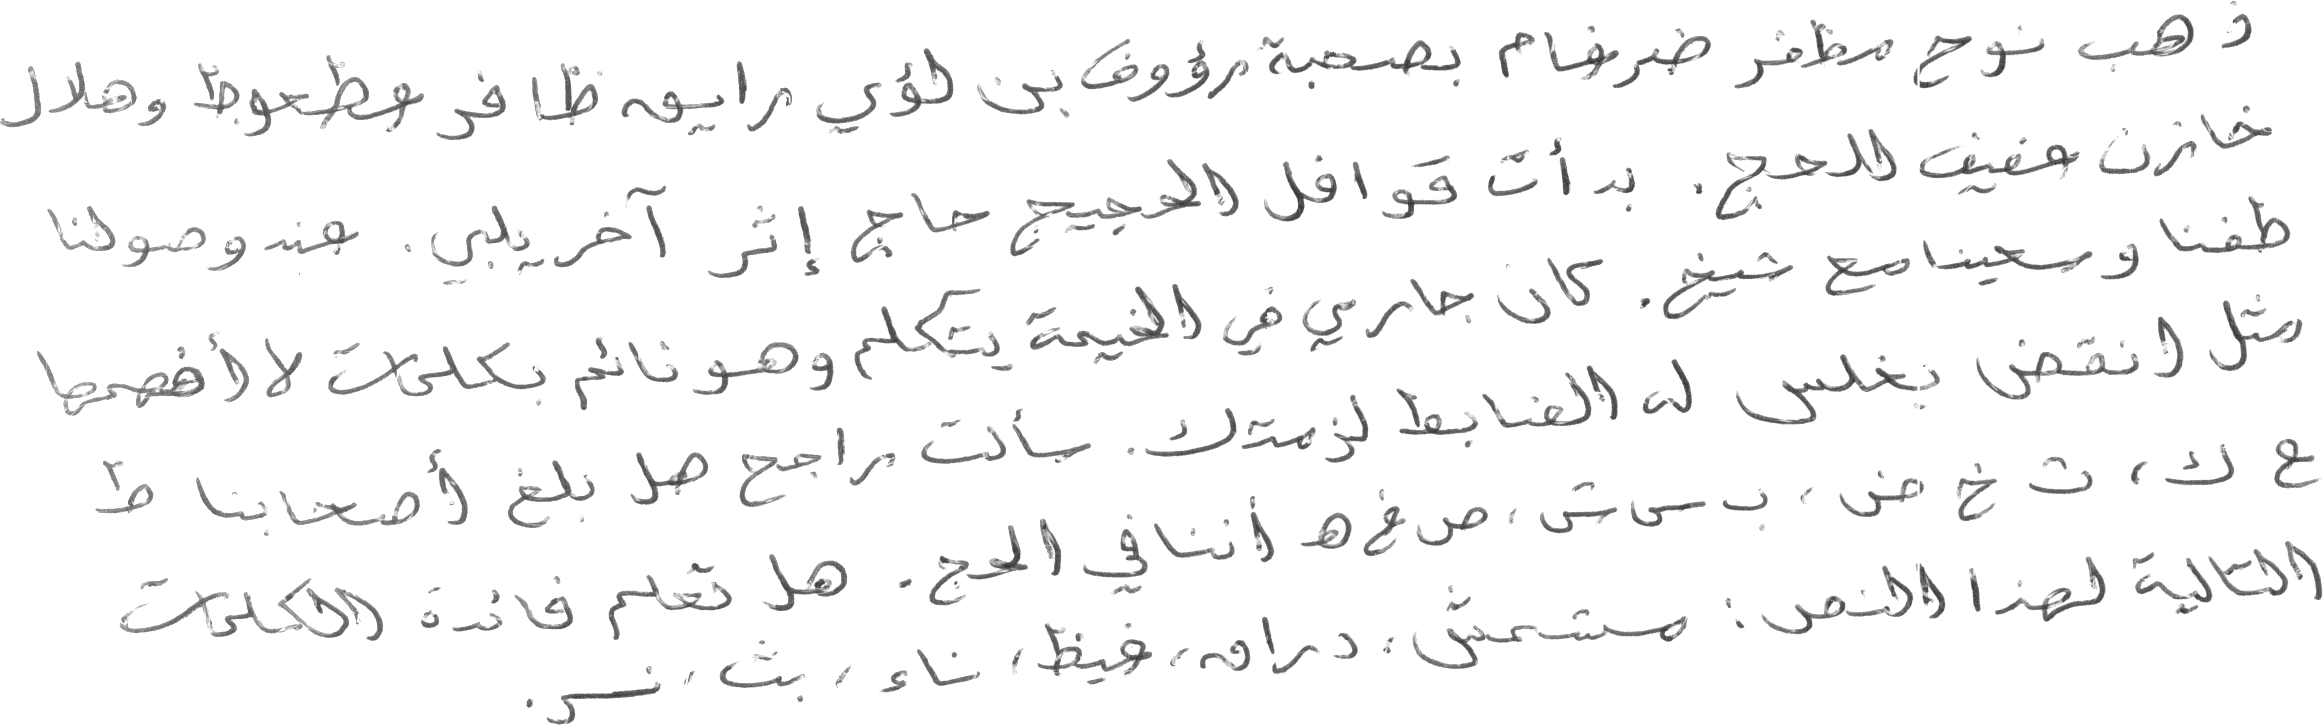 ذهب نوح مظفر ضرغام بصحبة رؤوف بن لؤي رايق ظافر عطعوط وهلال
خازن عفيف للحج. بدأت قوافل الحجيج حاج إثر آخر يلبي. عند وصولنا
طفنا وسعينا مع شيخ. كان جاري في الخيمة يتكلم وهو نائم بكلمات لا أفهمها
مثل انقض بغلس له الضابط لزمتك. سألت راجح هل بلغ أصحابنا ط
ع ك، ث خ ض، ب س ش، ص غ ه أننا في الحج. هل تعلم فائدة الكلمات
التالية لهذا النص: مشمش، دراق، غيظ، ناء، بث، نسر.